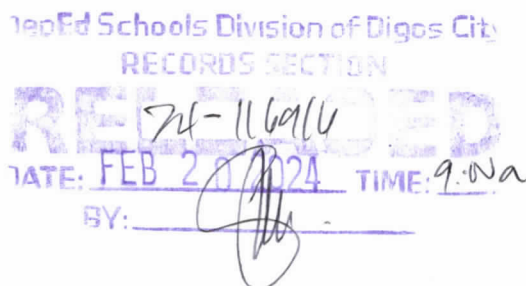 DepEd Schools Division of Digos City
RECORDS SECTION
RELEASED
DATE: FEB 20 2024 TIME:
BY: